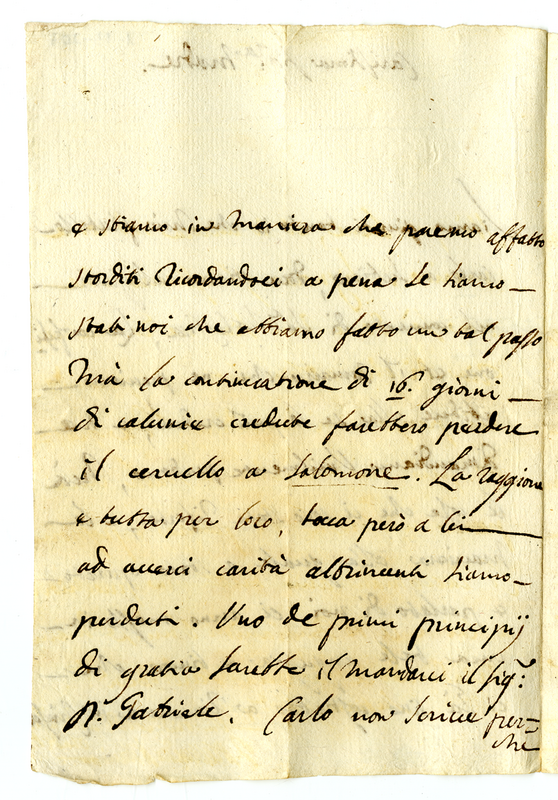 e stiamo in maniera che paremo affatto
storditi ricordandoci a pena se siamo
stati noi che abbiamo fatto un tal passo
Mà la continuatione di 16. giorni
di calunie credute farebbero perdere
il cervello a Salomone. La raggione
è tutta per loro, tocca però a lei
ad averci carità altrimenti siamo
perduti. Uno de primi principij
di gratia sarebbe il mandarci il sig.r
D. Gabriele. Carlo non scrive per=
che